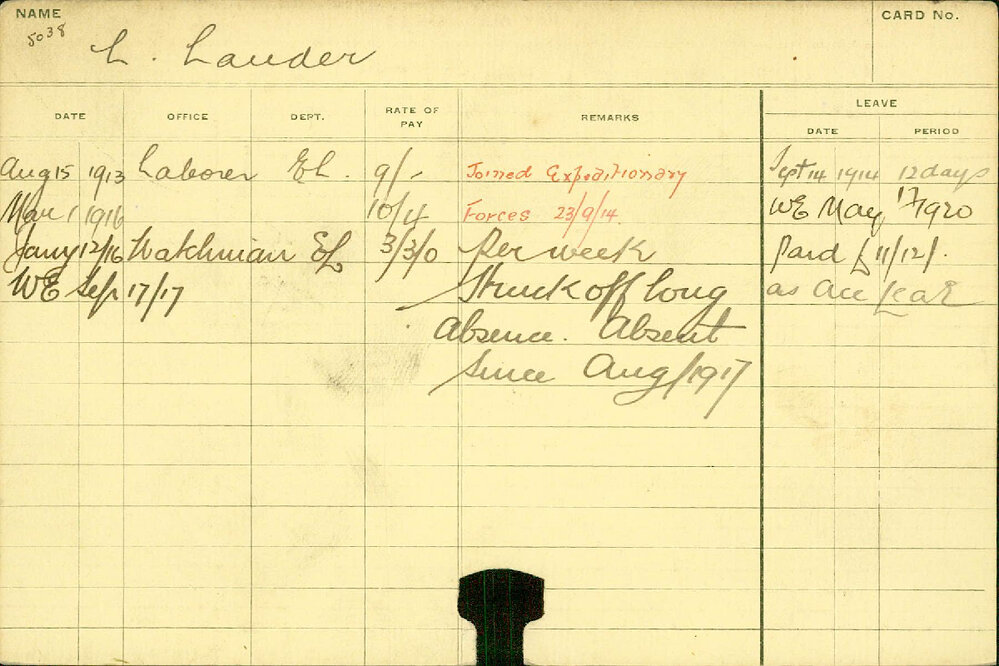 NAME
CARD No.
5038
L. Lauder
DATE OFFICE DEPT. RATE OF PAY REMARKS LEAVE
DATE PERIOD
Aug 15 1913 Laborer EL. 9/- Joined Expeditionary Sept 14 1914 12 days
Mar 1 1916 10/4 Forces 23/9/14 WE May 17 1920
Jany 12/16 Watchman EL 3/3/0 Per week Paid £11/12/.
WE Sep 17/17 Struck off long as acc Leave
Absence. Absent
Since Aug/1917